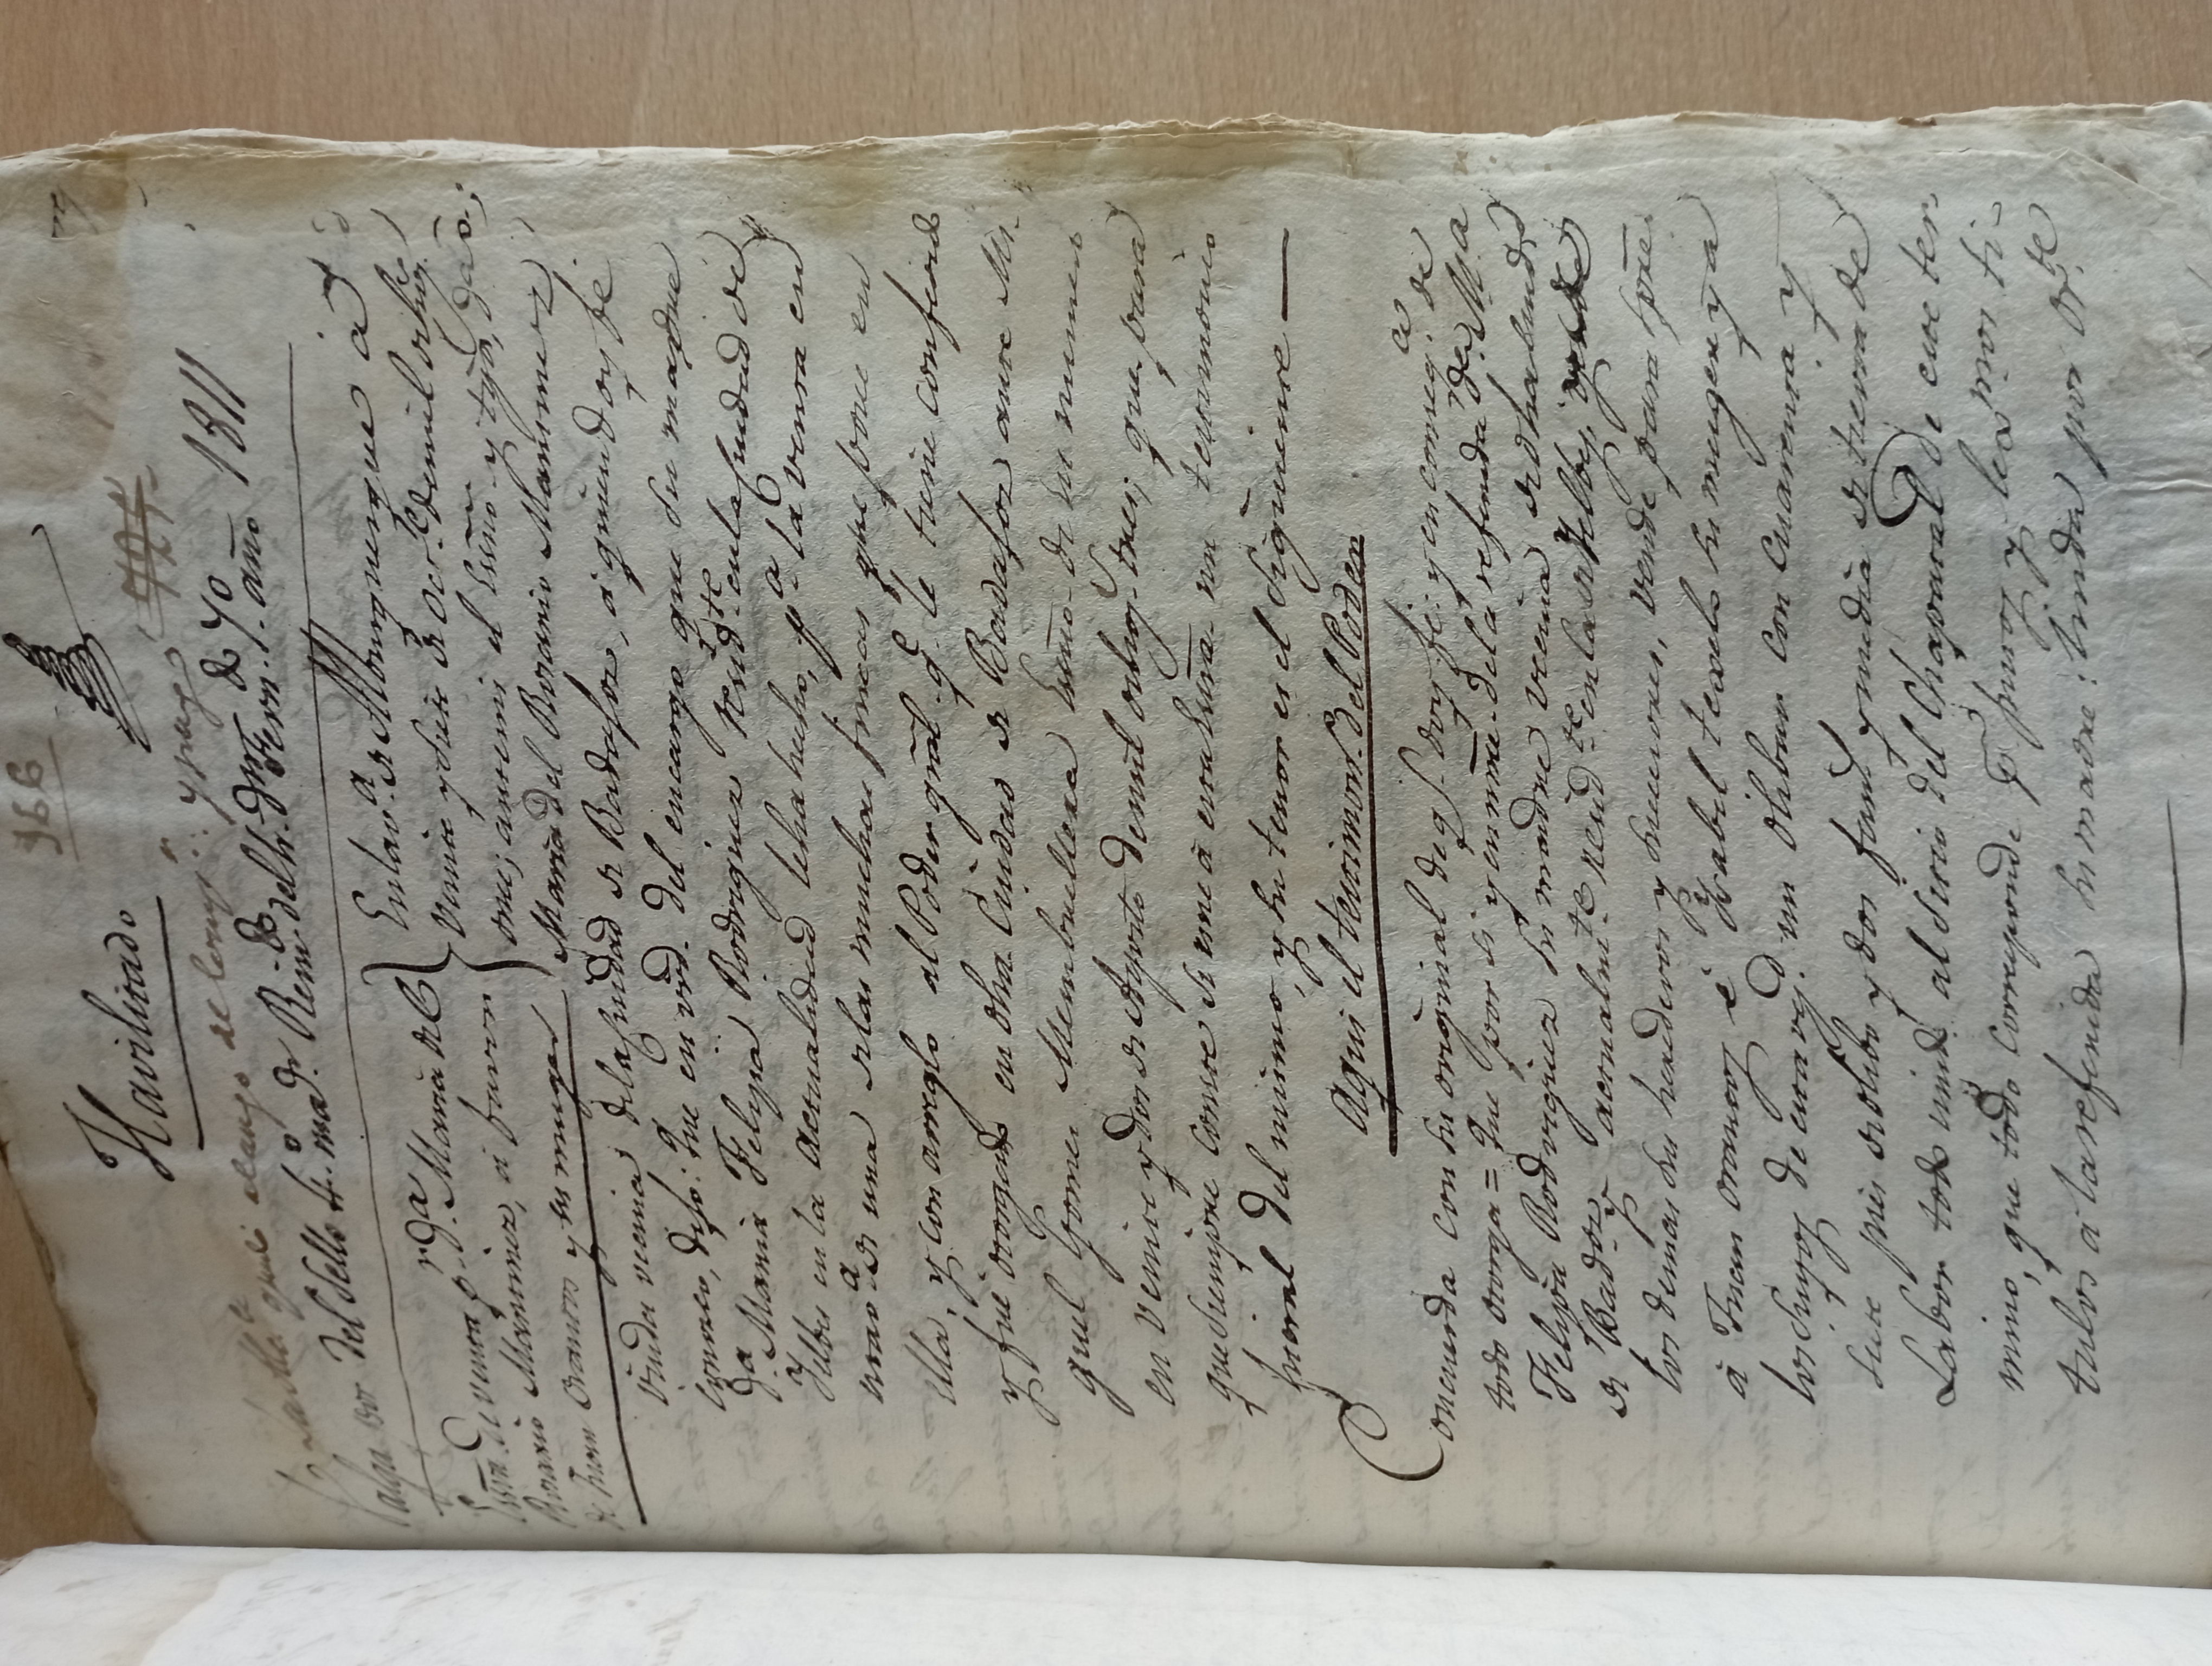 966
Havilitado
725
y pagó
Valga por del Sello 4.º mad.r Rein.do del Sr. Dn Fern.do 7.º año 1811
Essra. de venta p.r D.a Maria del
Rosario Martinez, á favor
de Juan Orantos y su muger
En la v.a de Alburquerque á
veinte y siete de Oct.e de mil ochos.
once; ante mi el Essno. y tgos,
Maria del Rosario Martinez
viuda vecina de la Ciudad de Badajoz, á quien doy fé
conozco, dijo: Que en vrd. del encargo que su madre
D.a Maria Felipa Rodriguez resid.te en la Ciudad de
Yelbes en la actualidad le ha hecho, p.a la venta en
esta v.a de una de las muchas fincas que posee en
ella, y con arreglo al Poder gral. q.e le tiene conferido
y fué otorgado en dha. Ciudad de Badajoz ante Mi-
guel Gomez Membrillera Essno. de su numero
en veinte y dos de Agosto de mil ochos. tres; que para
que siempre conste se une á esta Essra. un testimonio
literal del mismo, y su tenor es el siguiente —
Aqui el testimon.o del Poder
Concuerda con su original de q.e doy fé: y en conseq.ca de
todo otorga = Que por si y en nme. de la referida D.a M.a
Felipa Rodriguez su madre vecina de dha Ciud.d
de Bad.oz y actualm.te resid.te en la de Yelbes,
los demas sus herederos y succesores, vende para spre.
á Juan Orantos é Ysabel texelo su muger y a
los suyos de esta v.d un olibar con cuarenta y
siete pies de olibo y dos fan.s y media de tierra de
Labor todo unido al sitio del Chaparral de este ter-
mino, que todo corresponde p.r justos y lex.mos ti-
tulos á la referida su madre: linda por Or.te